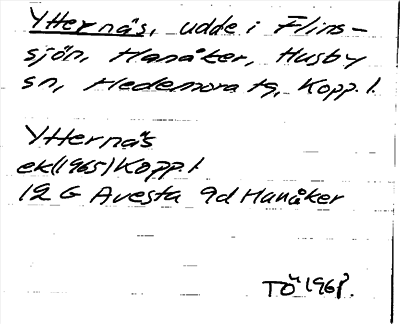 Ytternäs, udde i Flins-
sjön, Hanåker, Husby
sn, Hedemora tg, Kopp. l.
Ytternäs
ek (1965) Kopp. l
12 G Avesta 9d Hanåker
TÖ 1968.